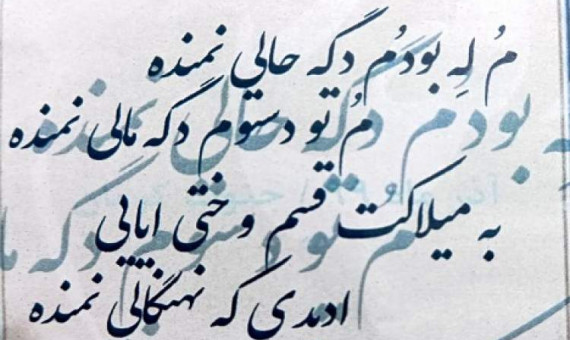 مُ لِه بودُم دگه حالی نمنده
مُ تو دستوم دگه مالی نمنده
به میلاکُت قسم وختی اپایی
ادمدی که نهنگالی نمنده